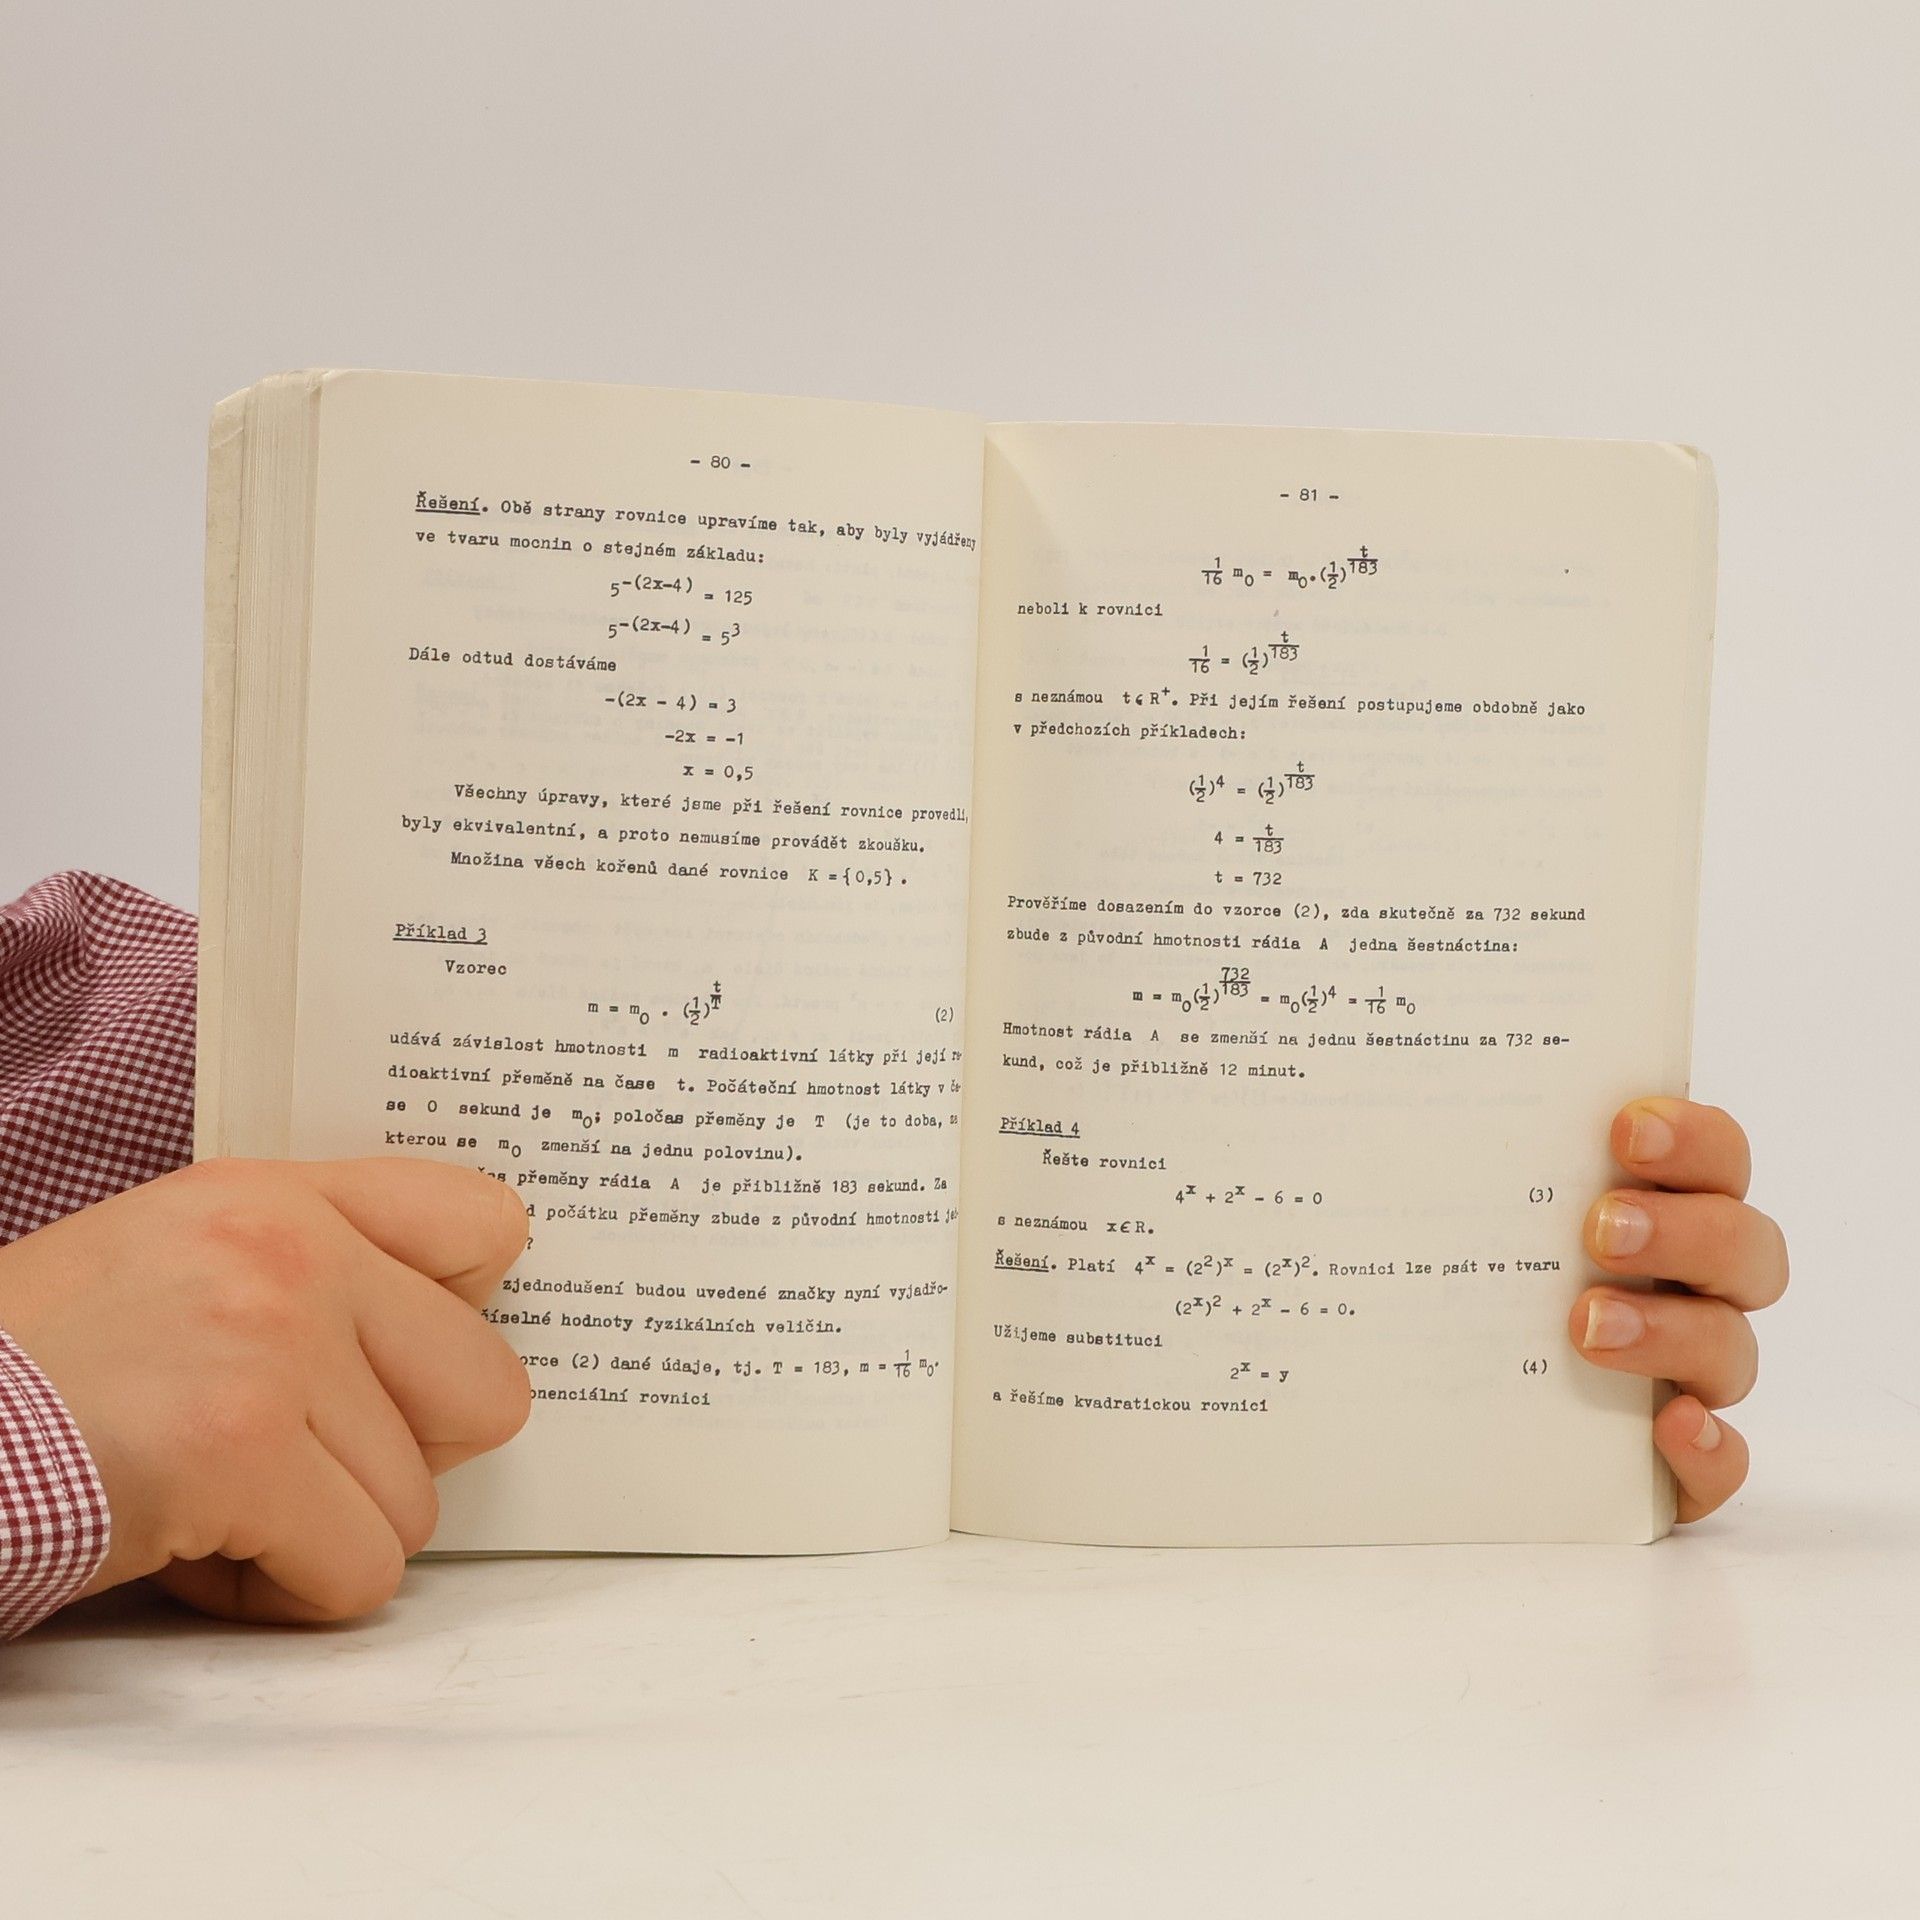 - 80 -
Řešení. Obě strany rovnice upravíme tak, aby byly vyjádřeny
ve tvaru mocnin o stejném základu:
5^-(2x-4) = 125
5^-(2x-4) = 5^3
Dále odtud dostáváme
-(2x - 4) = 3
-2x = -1
x = 0,5
Všechny úpravy, které jsme při řešení rovnice provedli,
byly ekvivalentní, a proto nemusíme provádět zkoušku.
Množina všech kořenů dané rovnice K = {0,5} .
Příklad 3
Vzorec
m = m_0 . (1/2)^(t/T) (2)
udává závislost hmotnosti m radioaktivní látky při její
dioaktivní přeměně na čase t. Počáteční hmotnost látky v
se 0 sekund je m_0; poločas přeměny je T (je to doba, za
kterou se m_0 zmenší na jednu polovinu).
přeměny rádia A je přibližně 183 sekund. Za
počátku přeměny zbude z původní hmotnosti
?
zjednodušení budou uvedené značky nyní vyjadřo-
číselné hodnoty fyzikálních veličin.
(2) dané údaje, tj. T = 183, m = 1/16 m_0.
rovnici
- 81 -
1/16 m_0 = m_0.(1/2)^(t/183)
neboli k rovnici
1/16 = (1/2)^(t/183)
s neznámou t ϵ R^+. Při jejím řešení postupujeme obdobně jako
v předchozích příkladech:
(1/2)^4 = (1/2)^(t/183)
4 = t/183
t = 732
Prověříme dosazením do vzorce (2), zda skutečně za 732 sekund
zbude z původní hmotnosti rádia A jedna šestnáctina:
m = m_0(1/2)^(732/183) = m_0(1/2)^4 = 1/16 m_0
Hmotnost rádia A se zmenší na jednu šestnáctinu za 732 se-
kund, což je přibližně 12 minut.
Příklad 4
Řešte rovnici
4^x + 2^x - 6 = 0 (3)
s neznámou x ϵ R.
Řešení. Platí 4^x = (2^2)^x = (2^x)^2. Rovnici lze psát ve tvaru
(2^x)^2 + 2^x - 6 = 0.
Užijeme substituci
2^x = y (4)
a řešíme kvadratickou rovnici